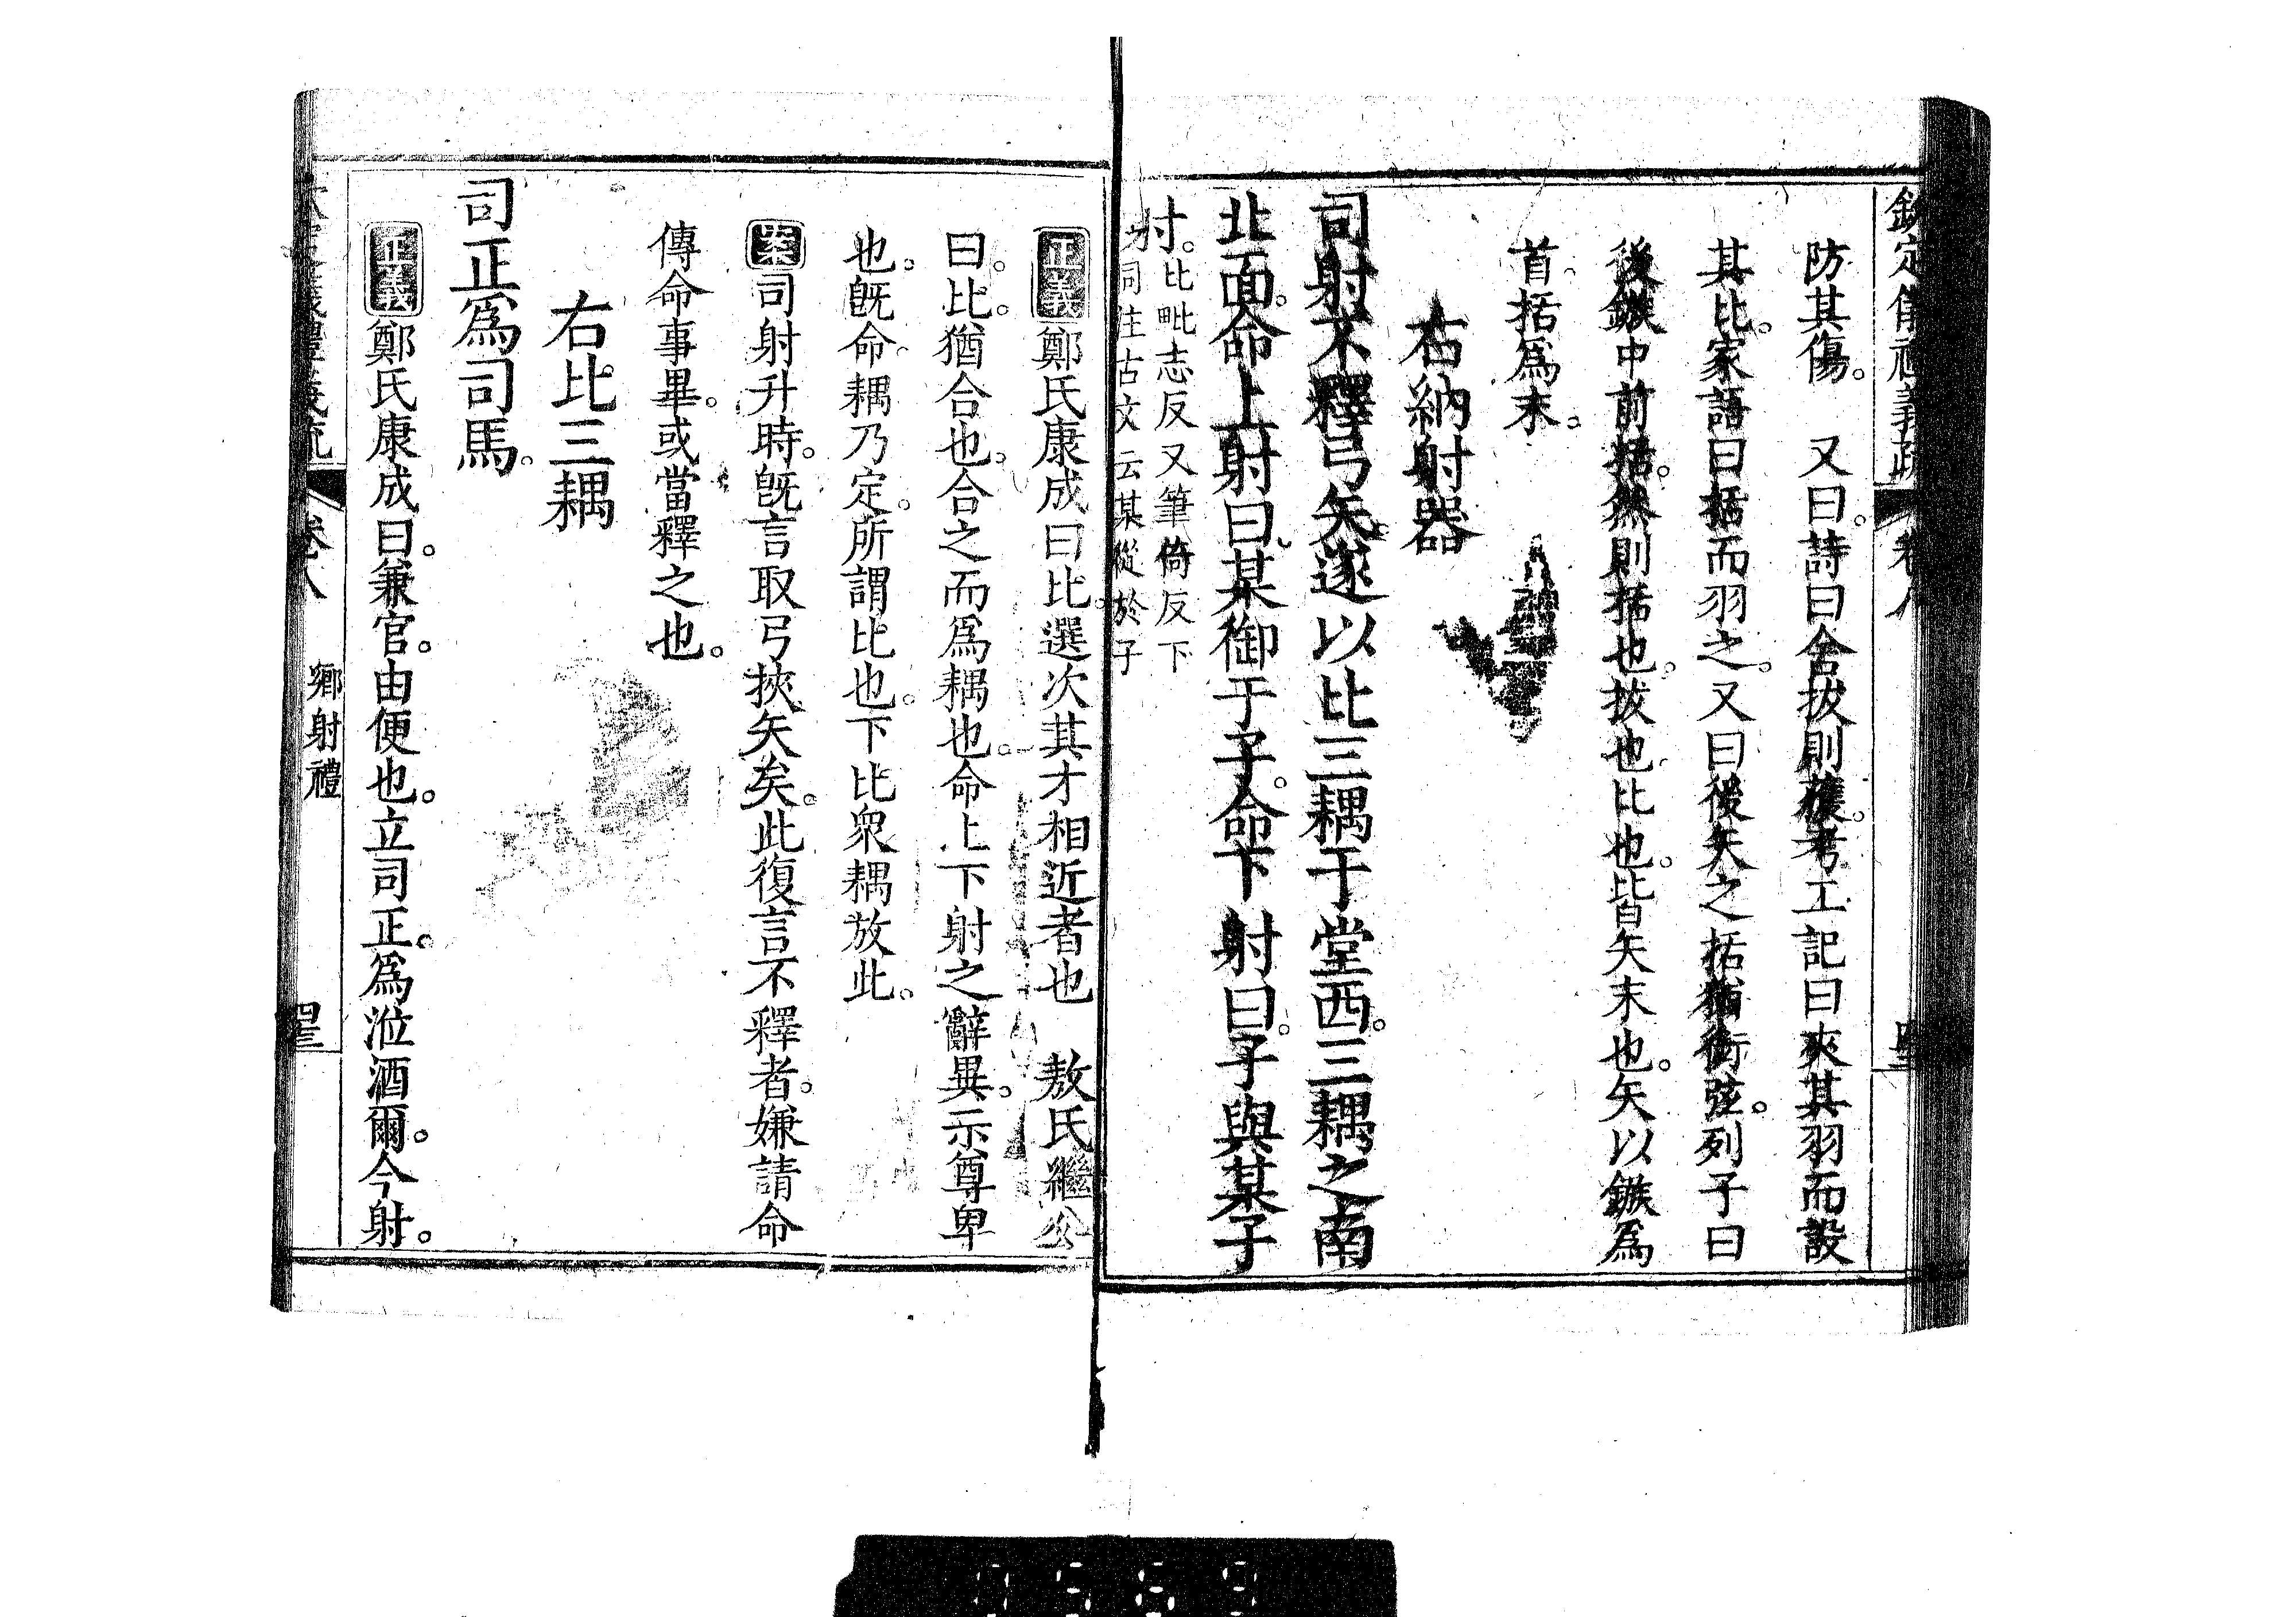 欽定儀禮義疏 卷八
防其傷。 又曰。詩曰舍拔則獲。考工記曰夾其羽而設
其比。家語曰括而羽之。又曰後矢之括猶銜弦。列子曰
後鏃中前括。然則括也。拔也。比也。皆矢末也。矢以鏃爲
首。括爲末。
右納射器
司射不釋弓矢。遂以比三耦于堂西。三耦之南
北面。命上射曰。某御于子。命下射曰。子與某子
射。比毗志反又筆倚反下
同注古文云某從於子
正義鄭氏康成曰比。選次其才相近者也 敖氏繼公
曰。比。猶合也。合之而爲耦也。命上下射之辭異。示尊卑
也。旣命。耦乃定。所謂比也。下比衆耦放此。
案司射升時。旣言取弓挾矢矣。此復言不釋者。嫌請命
傳命事畢。或當釋之也。
右比三耦
司正爲司馬。
正義鄭氏康成曰。兼官。由便也。立司正。爲涖酒爾。今射。
欽定儀禮義疏 卷八 鄉射禮